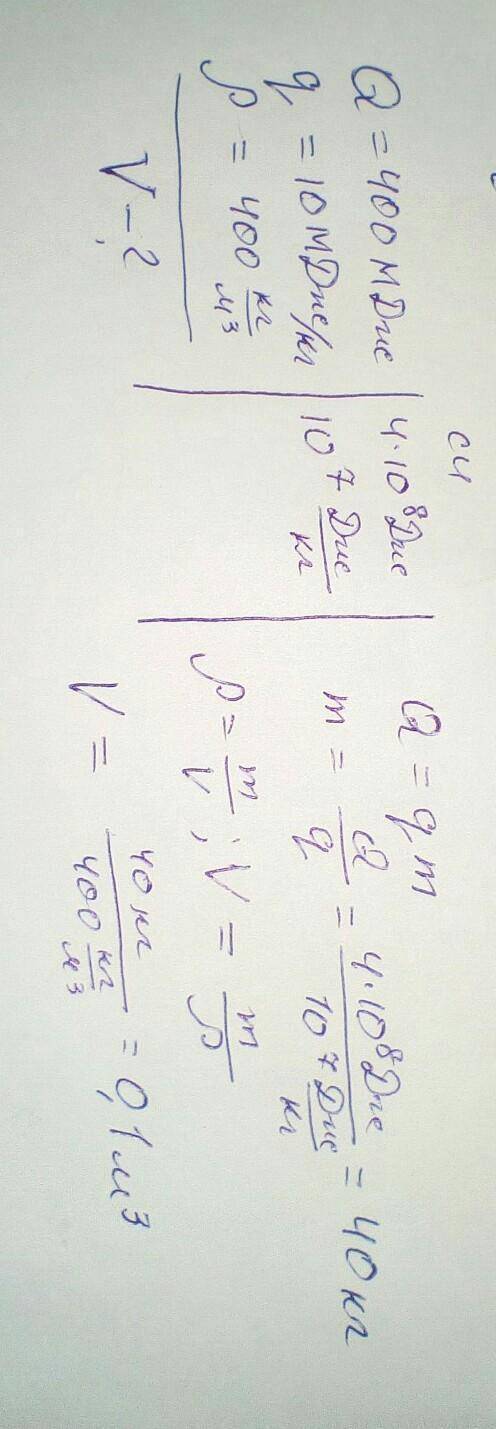 Q = 400 МДж
q = 10 МДж/кг
ρ = 400 кг/м³
V - ?
СИ
4·10⁸ Дж
10⁷ Дж/кг
Q = qm
m = Q/q = 4·10⁸ Дж / 10⁷ Дж/кг = 40 кг
ρ = m/V ; V = m/ρ
V = 40 кг / 400 кг/м³ = 0,1 м³